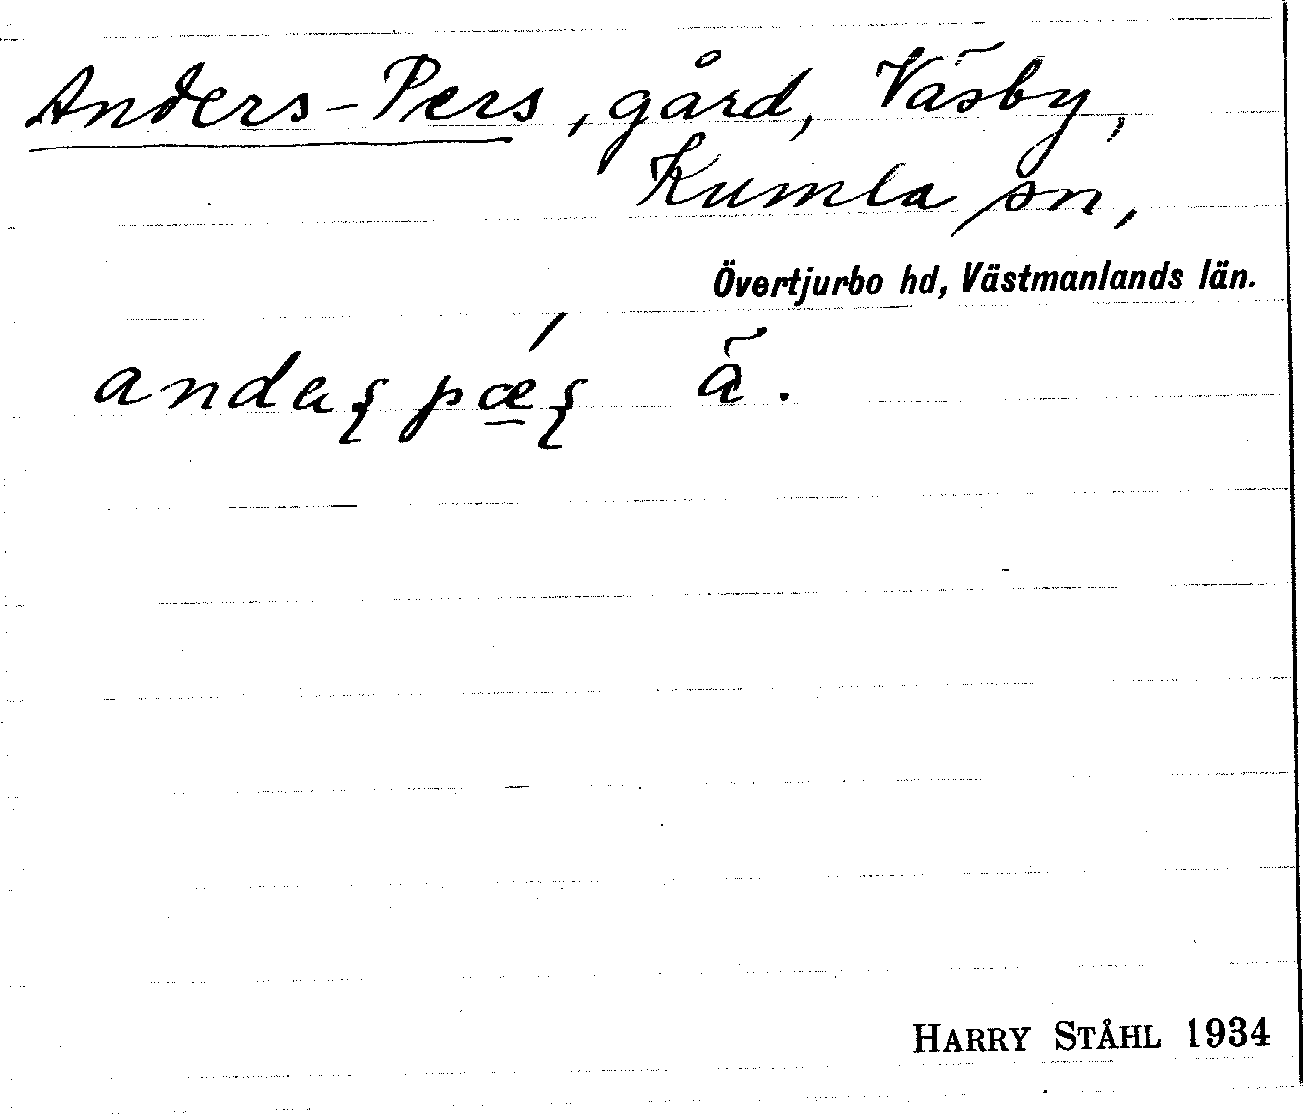 Anders-Pers, gård, Väsby,
Kumla sn,
Övertjurbo hd, Västmanlands län.
andaʂ pǽ̱ʂ ā̈.
HARRY STÅHL 1934